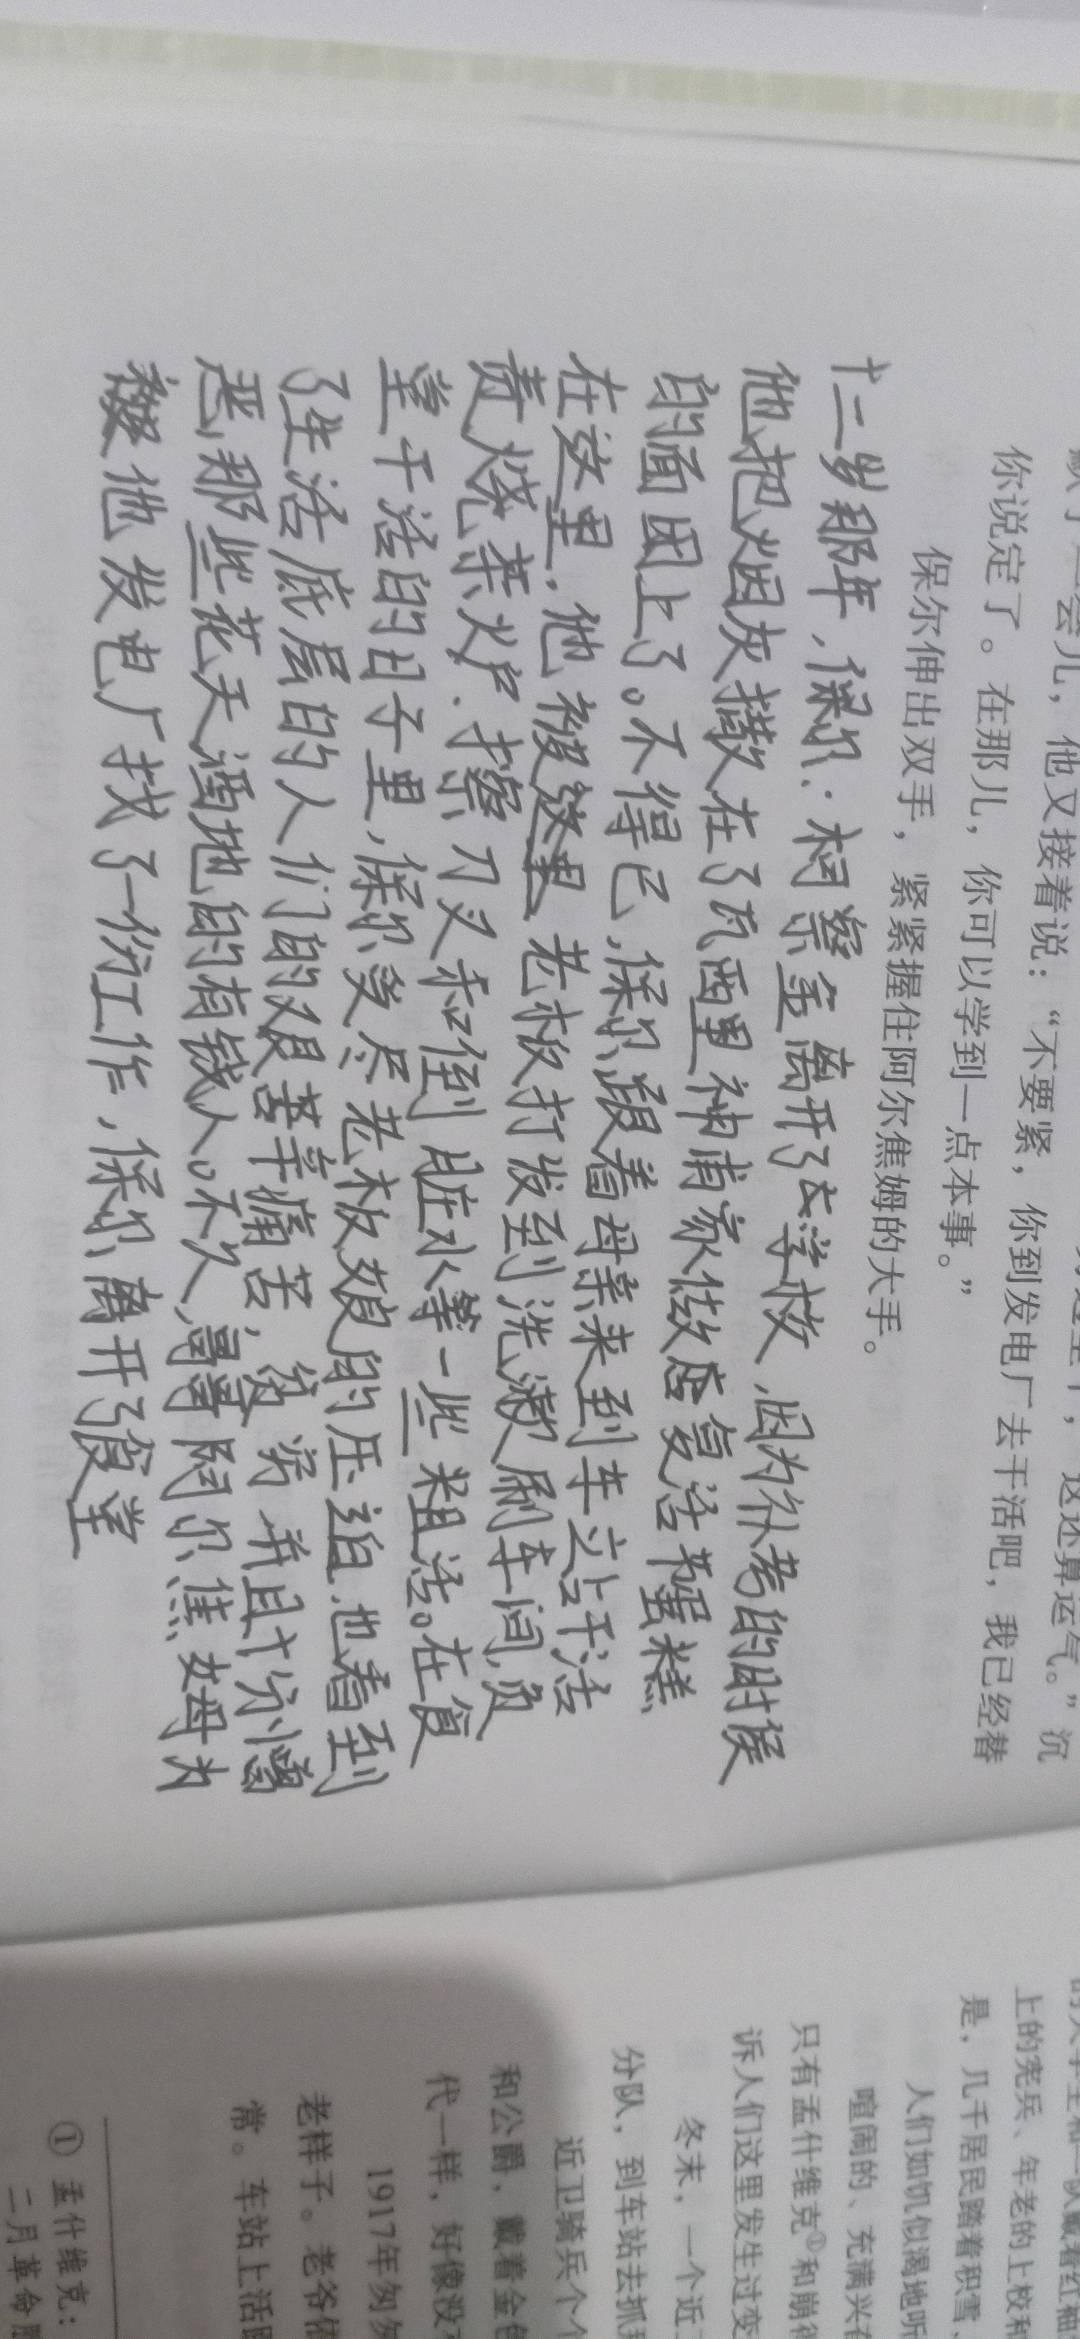 你说定了。在那儿，你可以学到一点本事。”
保尔伸出双手，紧紧握住阿尔焦姆的大手。
会儿，他又接着说：“不要紧，你到发电厂去干活吧，我已经替
这还算运气。”沉
十二岁那年，保尔·柯察金离开了学校，因为补考的时候
他把烟灰撒在了瓦西里神甫家做店复活节蛋糕
的面团上了。不得已，保尔跟着母亲来到车站干活
在这里，他被这里老板打发到洗漱刷车间，负
责烧茶火炉、擦刀叉和倒脏水等一些粗活。在食
堂干活的日子里，保尔受尽老板娘的压迫，也看到
了生活底层的人们的艰苦辛痛苦，贫穷并且十分憎
恶那些花天酒地的有钱人。不久，哥哥阿尔焦姆为
他发电厂找了一份工作，保尔离开了食堂
上的宪兵、年老的上校和
是，几千居民踏着积雪、
人们如饥似渴地听
喧闹的、充满兴奋
只有孟什维克①和崩得
诉人们这里发生过变
冬末，一个近卫
分队，到车站去抓
近卫骑兵个个
和公爵，戴着金色
代一样，好像没
1917年匆匆
老样子。老爷依
常。车站上活跃
① 孟什维克：
二月革命